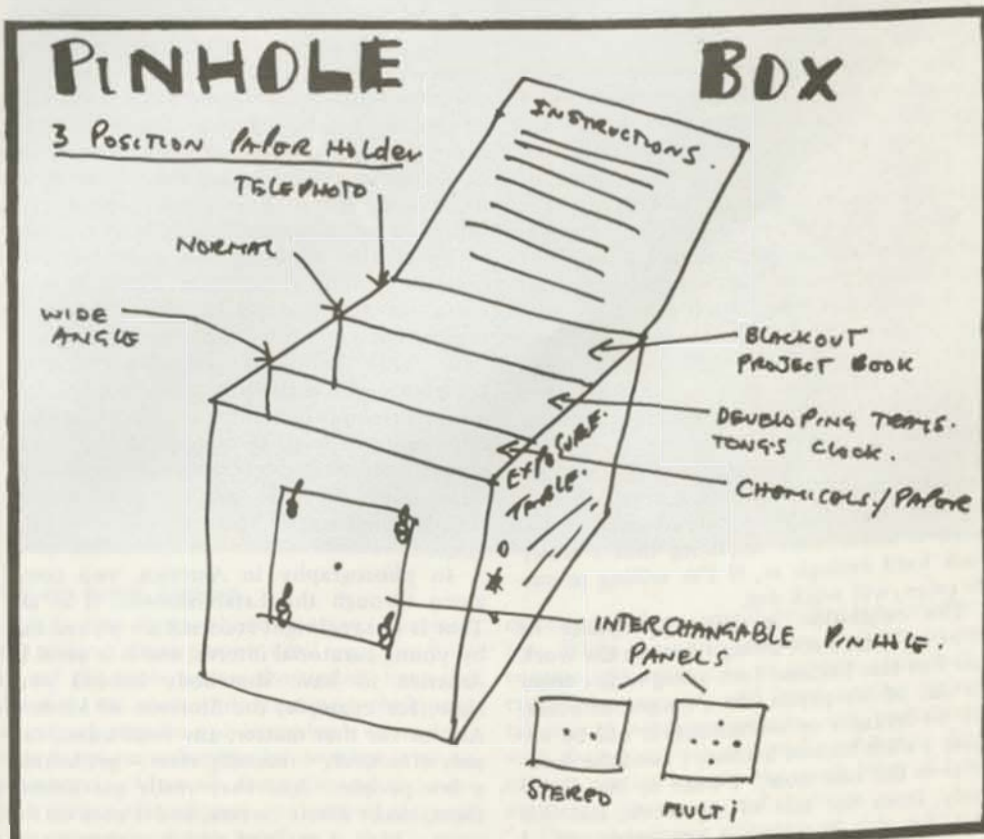 PINHOLE BOX
3 POSITION PAPER HOLDER
TELEPHOTO
NORMAL
WIDE
ANGLE
INSTRUCTIONS.
BLACKOUT
PROJECT BOOK
DEVELOPING TRAYS.
TONGS CLOCK.
CHEMICALS/PAPER
EXPOSURE.
TABLE.
INTERCHANGABLE PINHOLE.
PANELS
STEREO
MULTI